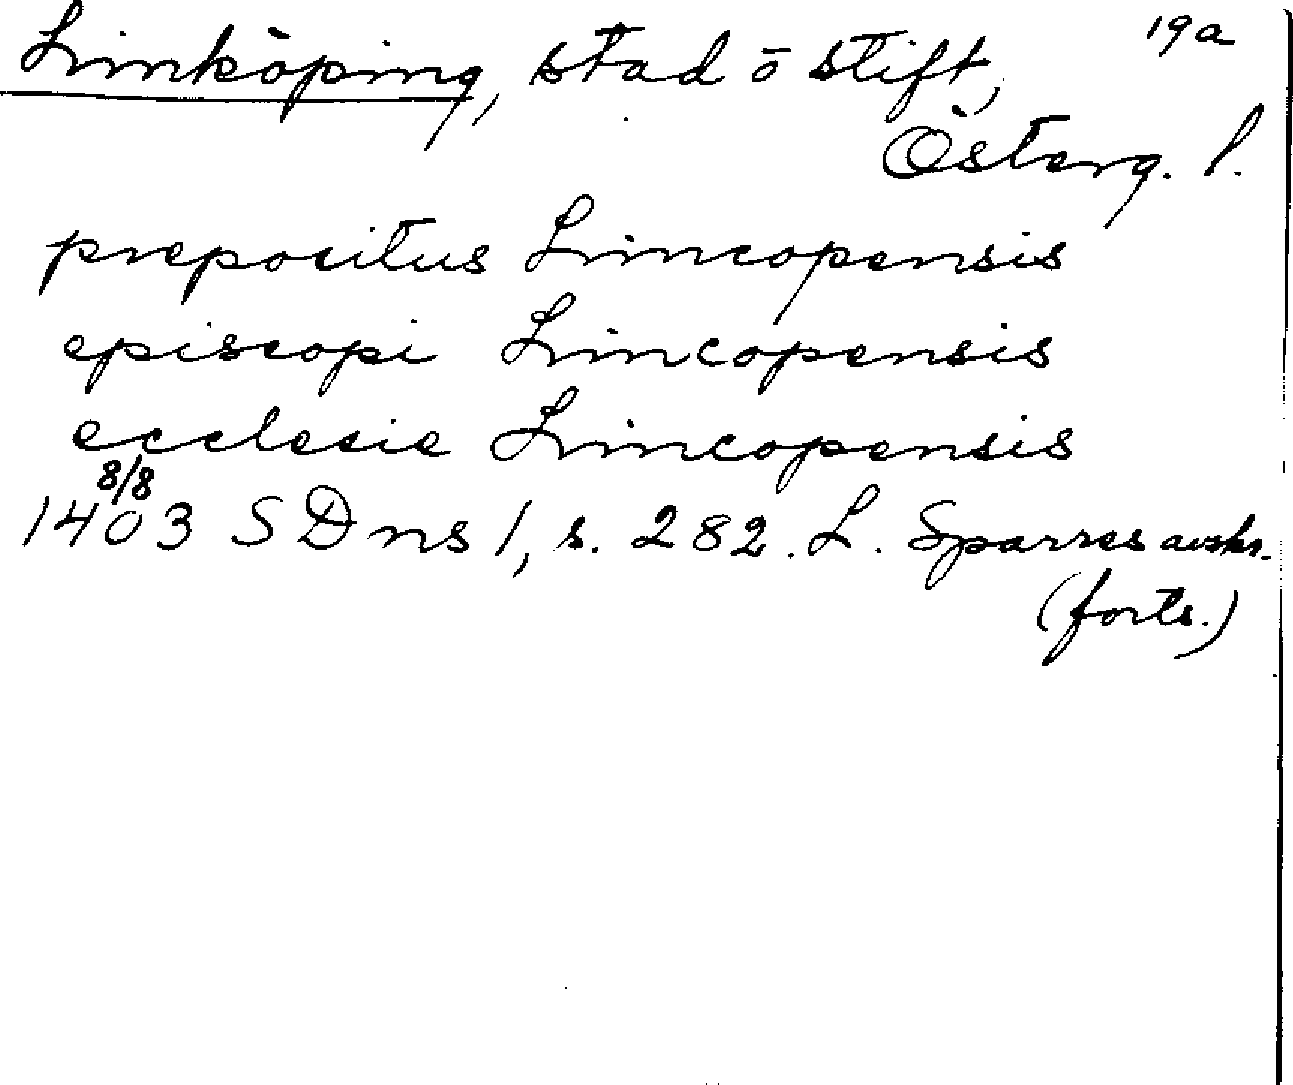 19a
Linköping, stad o stift,
Österg. l.
prepositus Lincopensis
episcopi Lincopensis
ecclesie Lincopensis
8/8
1403 SDns 1, s. 282. L. Sparres avskr.
(forts.)